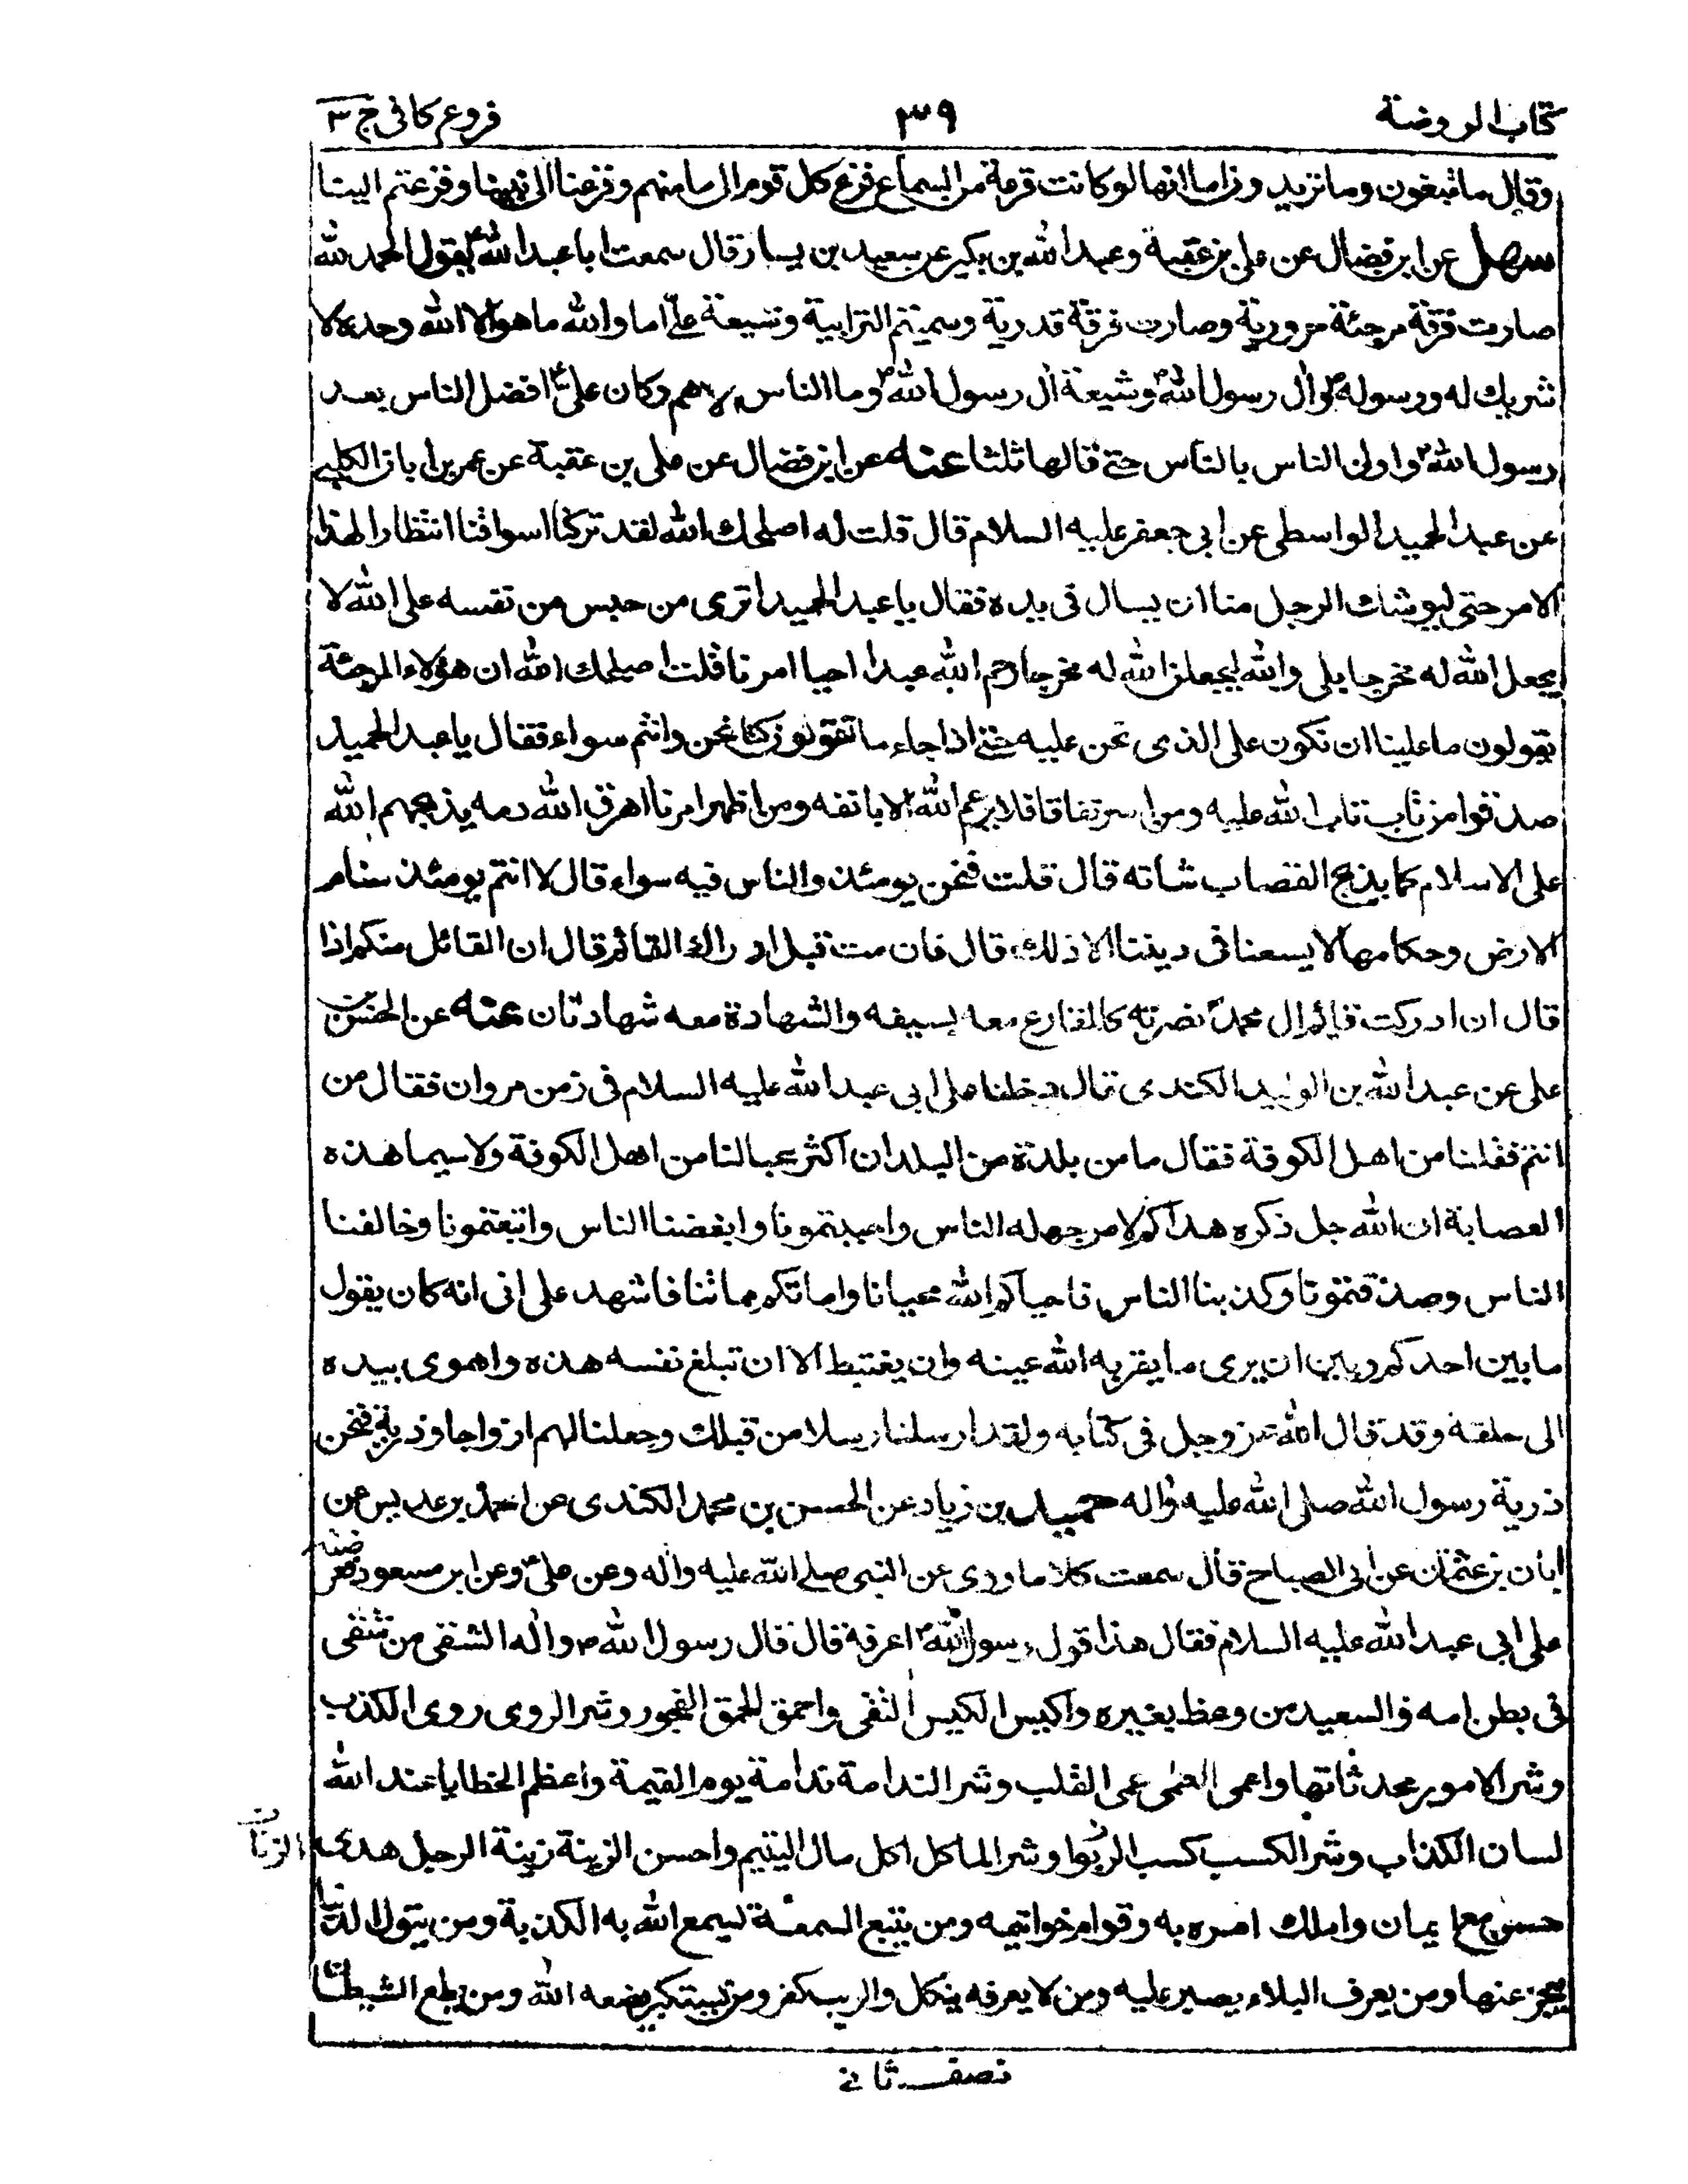 كتاب الروضة ٣٩ فروع كافى ج ٣
وقال ما تبغون وما تريدون اما انها لو كانت فزعة من السماء فزع كل قوم الى مامنهم وفزعنا الى نبينا وفزعتم الينا
سهل عن ابن فضال عن على بن عقبة وعبد الله بن بكير عن سعيد بن يسار قال سمعت ابا عبد الله ع يقول الحمد لله
صارت فرقة مرجئة حرورية وصارت فرقة قدرية وسميتم الترابية وشيعة على اما والله ما هو الا الله وحده لا
شريك له ورسوله ص وآل رسول الله ص وشيعة آل رسول الله ص وما الناس الا هم وكان على ع افضل الناس بعد
رسول الله ص واولى الناس بالناس حتى قالها ثلثا عنه عن ابن فضال عن على بن عقبة عن عمر بن ابان الكلبى
عن عبد الحميد الواسطى عن ابى جعفر عليه السلام قال قلت له اصلحك الله لقد تركنا اسواقنا انتظارا لهذا
الامر حتى ليوشك الرجل منا ان يسال فى يده فقال يا عبد الحميد اترى من حبس من نفسه على الله لا
يجعل الله له مخرجا بلى والله ليجعلن الله له مخرجا رحم الله عبدا احيا امرنا قلت اصلحك الله ان هؤلاء المرجئة
يقولون ما علينا ان نكون على الذى نحن عليه حتى اذا جاء ما تقولون كنا نحن وانتم سواء فقال يا عبد الحميد
صدقوا من تاب تاب الله عليه ومن اسر نفاقا فلا يرغم الله الا بانفه ومن اظهر امرنا اهرق الله دمه يذبحهم الله
على الاسلام كما يذبح القصاب شاته قال قلت فنحن يومئذ والناس فيه سواء قال لا انتم يومئذ سنام
الارض وحكامها لا يسعنا فى ديننا الا ذلك قال فان مت قبل ادراك القائم قال ان القائل منكم اذا
قال ان ادركت قائم ال محمد نصرته كالمقارع معه بسيفه والشهادة معه شهادتان عنه عن الحسن بن
على عن عبد الله بن الوليد الكندى قال دخلنا على ابى عبد الله عليه السلام فى زمن مروان فقال من
انتم فقلنا من اهل الكوفة فقال ما من بلدة من البلدان اكثر محبا لنا من اهل الكوفة ولا سيما هذه
العصابة ان الله جل ذكره هداكم لامر جهله الناس واحببتمونا وابغضنا الناس واتبعتمونا وخالفنا
الناس وصدقتمونا وكذبنا الناس فاحياكم الله محيانا واماتكم مماتنا فاشهد على ابى انه كان يقول
ما بين احدكم وبين ان يرى ما يقر به الله عينه وان يغتبط الا ان تبلغ نفسه هذه واهوى بيده
الى حلقه وقد قال الله عز وجل فى كتابه ولقد ارسلنا رسلا من قبلك وجعلنا لهم ازواجا وذرية فنحن
ذرية رسول الله صلى الله عليه وآله حميد بن زياد عن الحسن بن محمد الكندى عن احمد بن عديس عن
ابان بن عثمان عن ابى الصباح قال سمعت كلاما يروى عن النبى صلى الله عليه وآله وعن على ع وعن ابن مسعود فعرضته
على ابى عبد الله عليه السلام فقال هذا قول رسول الله ص اعرفه قال قال رسول الله ص وآله الشقى من شقى
فى بطن امه والسعيد من وعظ بغيره واكيس الكيس التقى واحمق الحمق الفجور وشر الروى روى الكذب
وشر الامور محدثاتها واعمى العمى عمى القلب وشر الندامة ندامة يوم القيمة واعظم الخطايا عند الله
لسان الكذاب وشر الكسب كسب الربوا وشر الماكل اكل مال اليتيم واحسن الزينة زينة الرجل هدى
حسن مع ايمان واملك امره به وقوام خواتيمه ومن يتبع السمعة يسمع الله به الكذبة ومن يتول الدنيا
يعجز عنها ومن يعرف البلاء يصبر عليه ومن لا يعرفه ينكل والريب كفر ومن يستكبر يضعه الله ومن يطع الشيطان
نصف ثانى